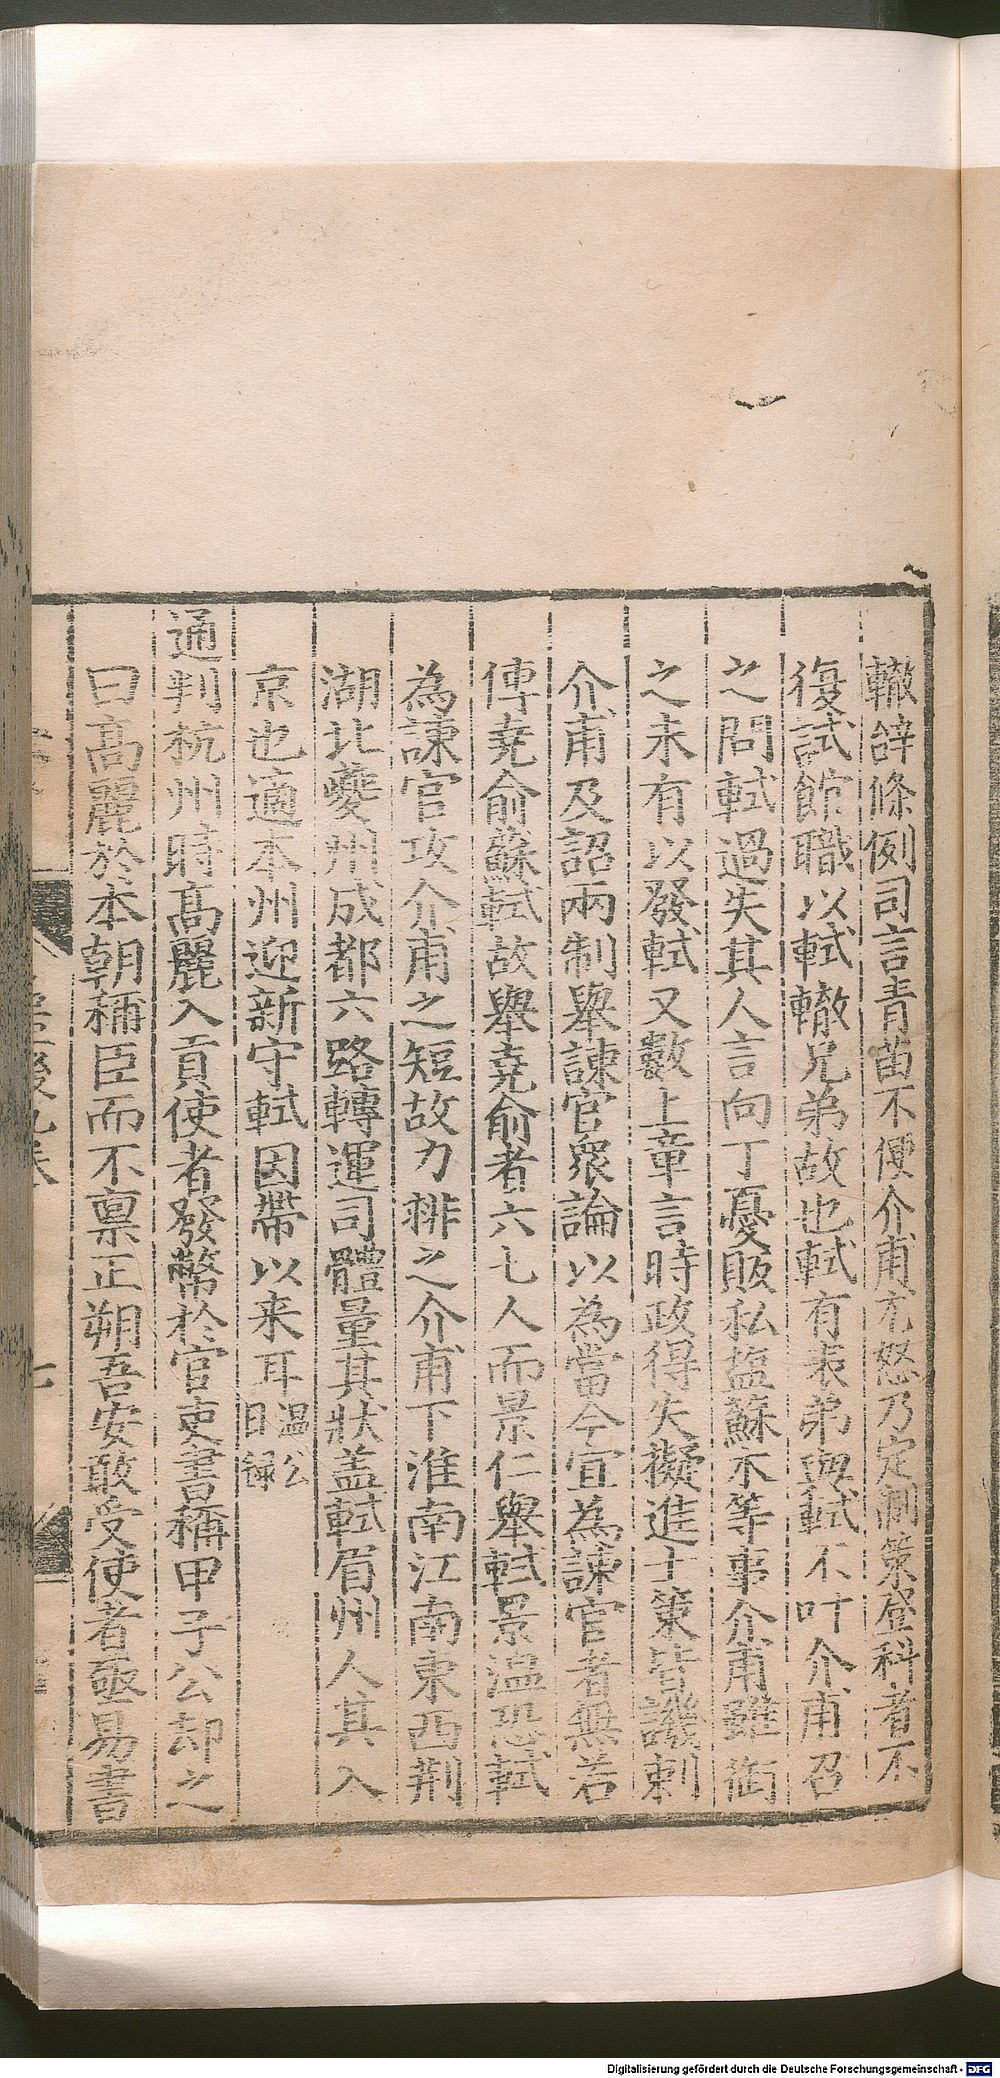 轍辭條例司言青苗不便介甫尤怒乃定制策登科者不
復試館職以軾轍兄弟故也軾有表弟與軾不叶介甫召
之問軾過失其人言向丁憂販私塩蘇木等事介甫雖銜
之未有以發軾又數上章言時政得失擬進士策皆譏刺
介甫及詔兩制舉諫官衆論以為當今宜為諫官者無若
傅堯俞蘇軾故舉堯俞者六七人而景仁舉軾景溫恐軾
為諫官攻介甫之短故力排之介甫下淮南江南東西荆
湖北夔州成都六路轉運司體量其狀盖軾眉州人其入
京也適本州迎新守軾因帶以来耳温公日録
通判杭州時高麗入貢使者發幣於官吏書稱甲子公却之
曰高麗於本朝稱臣而不禀正朔吾安敢受使者亟易書
後九卷
Digitalisierung gefördert durch die Deutsche Forschungsgemeinschaft - DFG